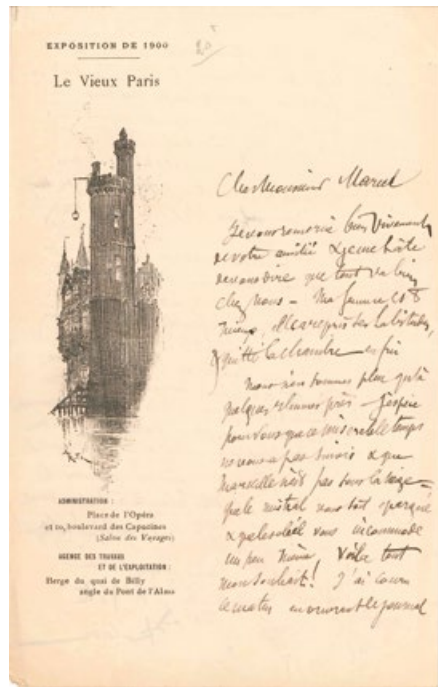 EXPOSITION DE 1900
Le Vieux Paris
ADMINISTRATION :
Place de l'Opéra
et 10, boulevard des Capucines
(Salon des Voyages)
AGENCE DES TRAVAUX
ET DE L'EXPLOITATION :
Berge du quai de Billy
angle du Pont de l'Alma
Cher Monsieur Marcel
Je vous remercie bien vivement
de votre amitié & je me hâte
de vous dire que tout va bien
chez nous – Ma femme est
mieux, elle a repris ses habitudes,
quitté la chambre enfin
Nous n'en sommes plus qu'à
quelques rhumes près – J'espère
pour vous que ce misérable temps
ne vous a pas suivis & que
Marseille n'est pas sous la neige –
que le mistral vous soit épargné
& que le soleil vous incommode
un peu même! Voilà tout
mon souhait! J'ai couru
ce matin en ouvrant le journal